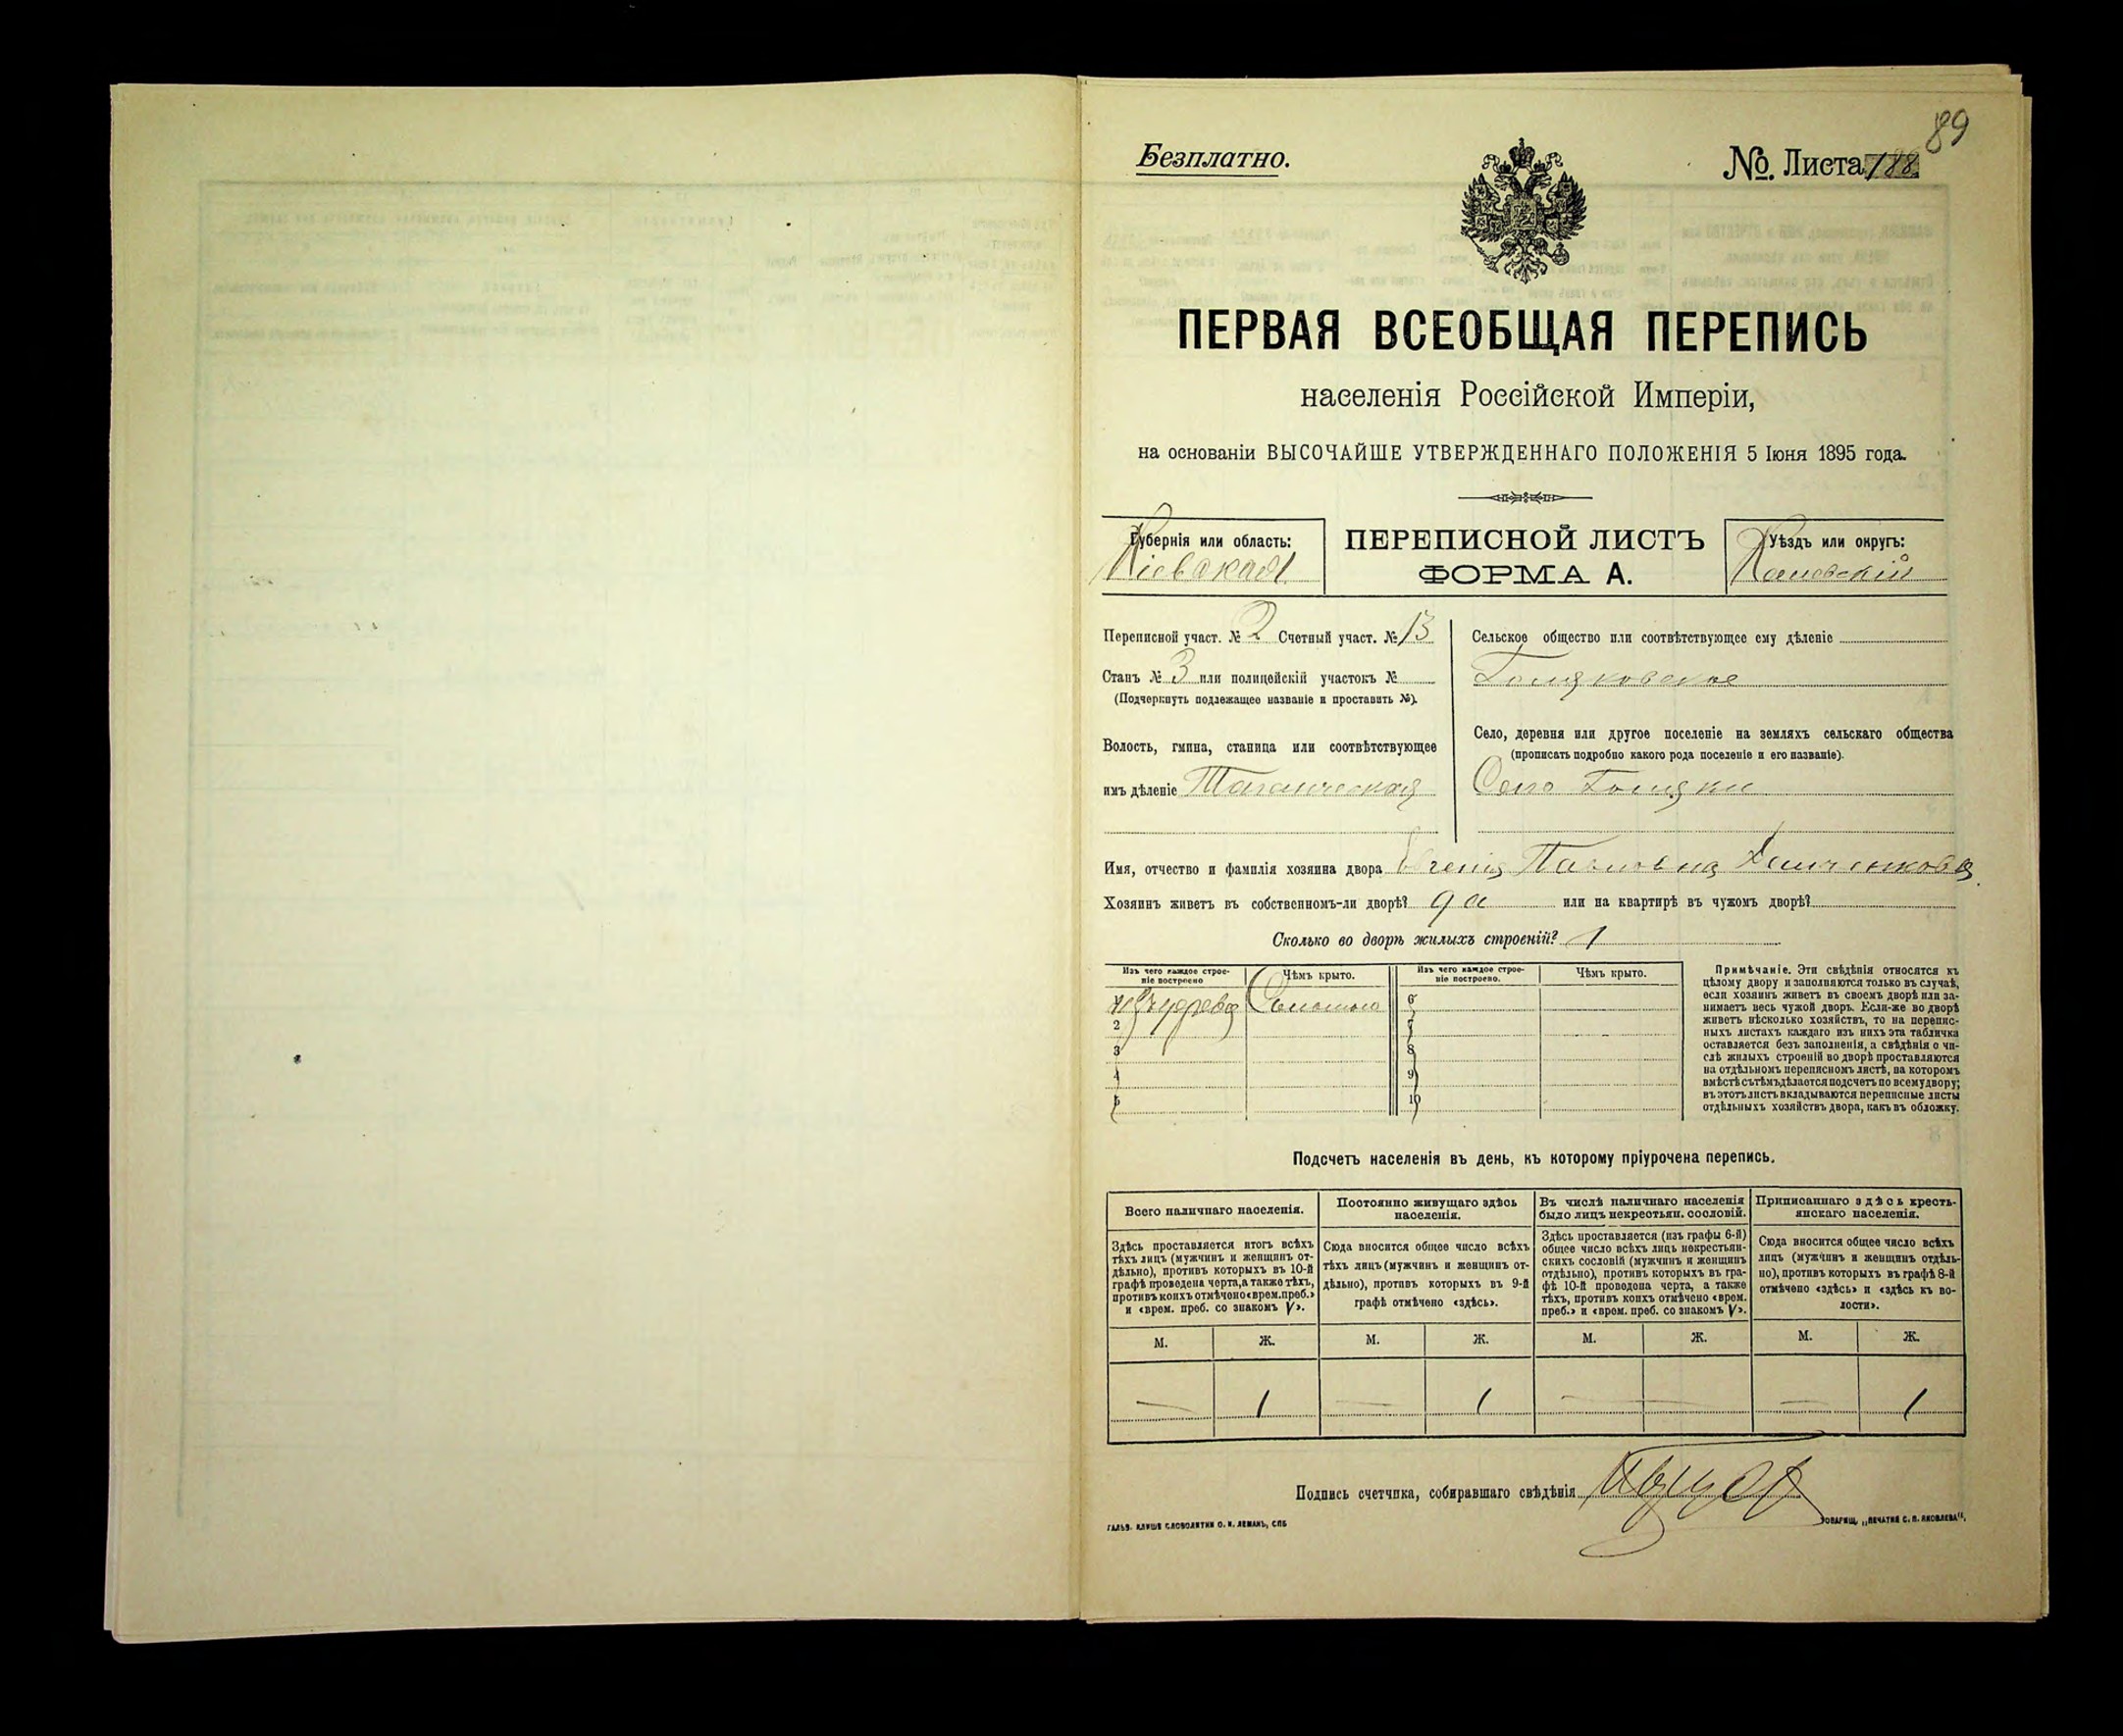 89
Безплатно.
№. Листа 188
ПЕРВАЯ ВСЕОБЩАЯ ПЕРЕПИСЬ
населенія Россійской Имперіи,
на основаніи ВЫСОЧАЙШЕ УТВЕРЖДЕННАГО ПОЛОЖЕНІЯ 5 Іюня 1895 года.
Губернія или область:
Кіевская
ПЕРЕПИСНОЙ ЛИСТЪ
ФОРМА А.
Уѣздъ или округъ:
Каневскій
Переписной участ. № 2 Счетный участ. № 13
Станъ № 3 или полицейскій участокъ №
(Подчеркнуть подлежащее названіе и проставить №).
Волость, гмина, станица или соотвѣтствующее
имъ дѣленіе Таганческая
Сельское общество или соотвѣтствующее ему дѣленіе
Голяковское
Село, деревня или другое поселеніе на земляхъ сельскаго общества
(прописать подробно какого рода поселеніе и его названіе).
Село Голяки
Имя, отчество и фамилія хозяина двора Евгенія Павловна
Хозяинъ живетъ въ собственномъ-ли дворѣ? да или на квартирѣ въ чужомъ дворѣ?
Сколько во дворѣ жилыхъ строеній? 1
Изъ чего каждое строе-
ніе построено
Чѣмъ крыто.
Изъ чего каждое строе-
ніе построено.
Чѣмъ крыто.
изъ дерева Соломою 6
2 7
3 8
4 9
5 10
Примѣчаніе. Эти свѣдѣнія относятся къ
цѣлому двору и заполняются только въ случаѣ,
если хозяинъ живетъ въ своемъ дворѣ или за-
нимаетъ весь чужой дворъ. Если-же во дворѣ
живетъ нѣсколько хозяйствъ, то на перепис-
ныхъ листахъ каждаго изъ нихъ эта табличка
оставляется безъ заполненія, а свѣдѣнія о чи-
слѣ жилыхъ строеній во дворѣ проставляются
на отдѣльномъ переписномъ листѣ, на которомъ
вмѣстѣ съ тѣмъ дѣлается подсчетъ по всему двору;
въ этотъ листъ вкладываются переписные листы
отдѣльныхъ хозяйствъ двора, какъ въ обложку.
Подсчетъ населенія въ день, къ которому пріурочена перепись.
Всего наличнаго населенія.
Здѣсь проставляется итогъ всѣхъ
тѣхъ лицъ (мужчинъ и женщинъ от-
дѣльно), противъ которыхъ въ 10-й
графѣ проведена черта, а также тѣхъ,
противъ коихъ отмѣчено «врем. преб.»
и «врем. преб. со знакомъ V».
Постоянно живущаго здѣсь
населенія.
Сюда вносится общее число всѣхъ
тѣхъ лицъ (мужчинъ и женщинъ от-
дѣльно), противъ которыхъ въ 9-й
графѣ отмѣчено «здѣсь».
Въ числѣ наличнаго населенія
было лицъ некрестьян. сословій.
Здѣсь проставляется (изъ графы 6-й)
общее число всѣхъ лицъ некрестьян-
скихъ сословій (мужчинъ и женщинъ
отдѣльно), противъ которыхъ въ гра-
фѣ 10-й проведена черта, а также
тѣхъ, противъ коихъ отмѣчено «врем.
преб.» и «врем. преб. со знакомъ V».
Приписаннаго здѣсь кресть-
янскаго населенія.
Сюда вносится общее число всѣхъ
лицъ (мужчинъ и женщинъ отдѣль-
но), противъ которыхъ въ графѣ 8-й
отмѣчено «здѣсь» и «здѣсь къ во-
лости».
М. Ж. М. Ж. М. Ж. М. Ж.
— 1 — 1 — — — 1
Подпись счетчика, собиравшаго свѣдѣнія
ГАЛЬВ. КЛИШЕ СЛОВОЛИТНИ О. И. ЛЕМАНЪ, СПБ
ТОВАРИЩ. „ПЕЧАТНЯ С. П. ЯКОВЛЕВА“.